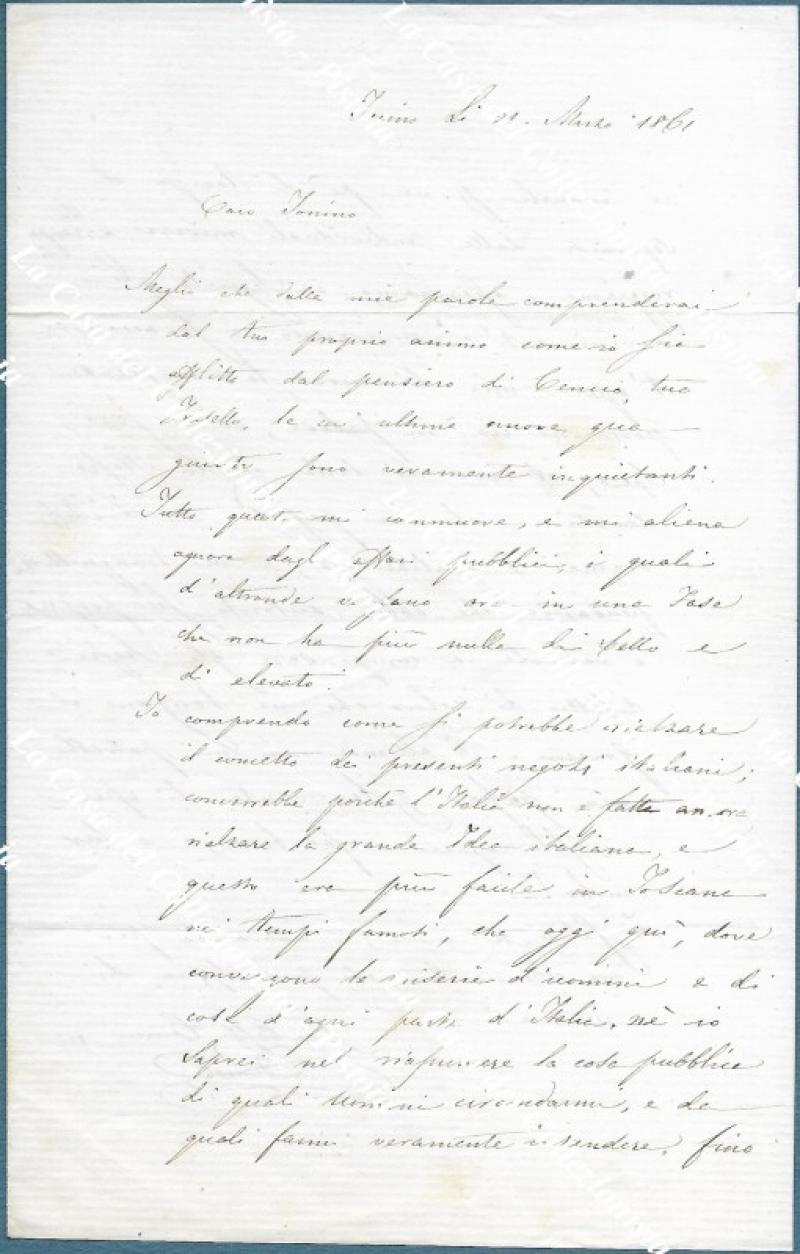 Torino Li 21. Marzo 1861
Caro Tonino
Meglio che dalle mie parole comprenderai
dal tuo proprio animo come io sia
afflitto dal pensiero di Cencio, tuo
fratello, le cui ultime nuove qua
giunte sono veramente inquietanti.
Tutto questo mi commuove, e mi aliena
ognora dagli affari pubblici, i quali
d'altronde vi sono ora in una fase
che non ha più nulla di bello e
di elevato.
Io comprendo come si potrebbe rialzare
il concetto dei presenti negozi italiani;
converrebbe poichè l'Italia non è fatta ancora
rialzare la grande Idea italiana, e
questo era più facile in Toscana
nei tempi famosi, che oggi quì, dove
convengono le miserie d'uomini e di
cose d'ogni parte d'Italia, nè io
saprei nel riassumere la cosa pubblica
di quali uomini circondarmi, e da
quali farmi veramente intendere, fino